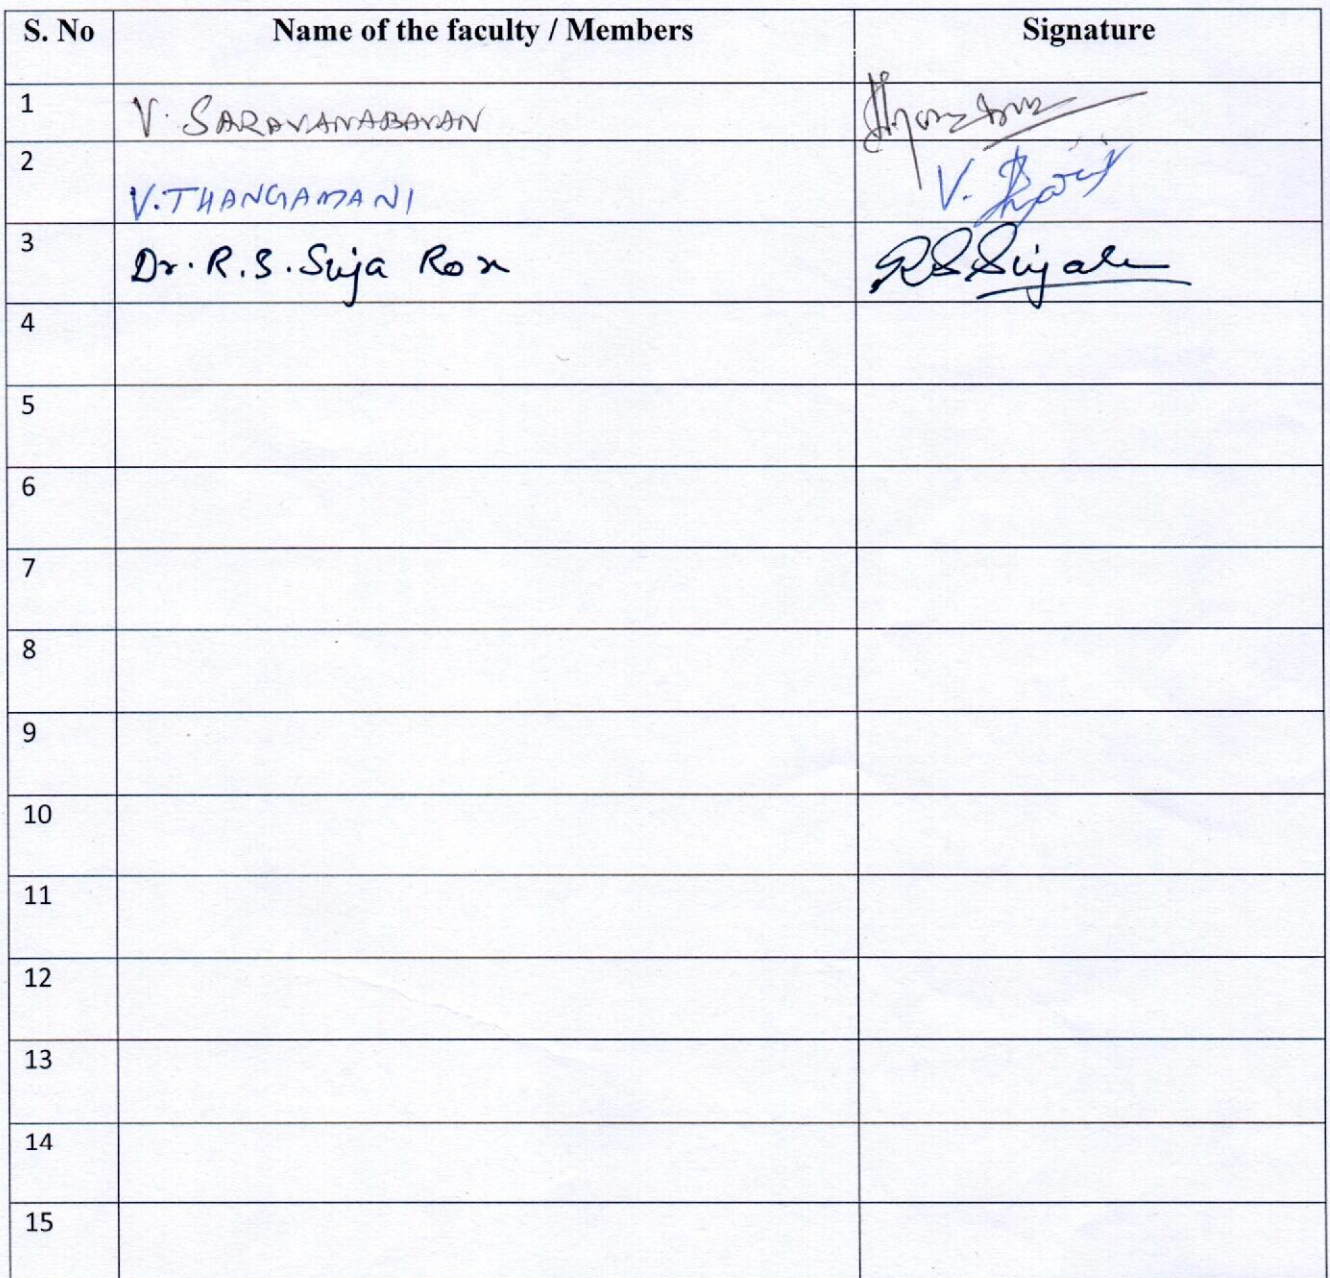 S. No Name of the faculty / Members Signature
1 V. SARAVANABAVAN
2 V. THANGAMANI V.
3 Dr. R.S. Suja Rose
4
5
6
7
8
9
10
11
12
13
14
15